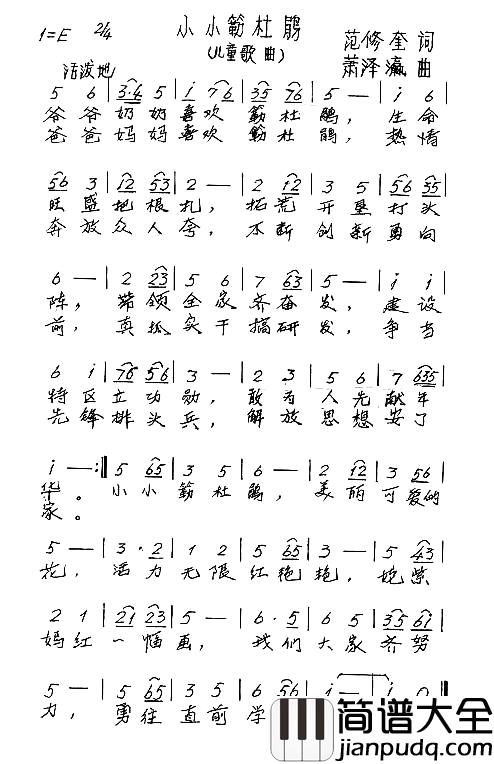 小小簕杜鹃
(儿童歌曲)
1=E 2/4
范修奎 词
活泼地
萧泽瀛 曲
5 6 | 3·4 5 | i 76 | 35 76 | 5 — | i 6 |
爷爷奶奶喜欢簕杜鹃，生命
爸爸妈妈喜欢簕杜鹃，热情
56 3 | 12 53 | 2 — | 2 12 | 3 5 | 56 35 |
旺盛把根扎，拓荒开垦打头
奔放众人夸，不断创新勇向
6 — | 2 23 | 5 6 | 7 63 | 5 — | i i |
阵，带领全家齐奋发，建设
前，真抓实干搞研发，争当
6 i | 76 56 | 3 — | 2 3 | 5 6 | 7 635 |
特区立功勋，敢为人先献年
先锋排头兵，解放思想安了
i — :‖ 5 65 | 3 5 | 6 — | 2 12 | 3 56 |
华。小小簕杜鹃，美丽可爱的
家。
5 — | 3·2 | 1 2 | 5 65 | 3 — | 5 43 |
花，活力无限红艳艳，姹紫
2 1 | 21 23 | 5 — | 6·5 | 6 5 | 35 61 |
嫣红一幅画，我们大家齐努
5 — | 5 65 | 3 5 | 6 56 | i — | i 0 ‖
力，勇往直前学
简谱大全
jianpudq.com